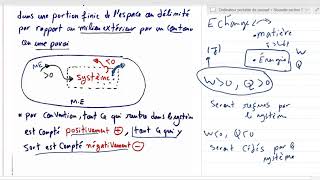 dans une portion finie de l'espace on délimité
par rapport au milieu extérieur par un contenu
ou une paroi
M.E
>0
<0
système
M.E
* par convention, tout ce qui rentre dans le système
est compté positivement +, tout ce qui
sort est compté négativement -
E change
matière
Energie
W>0, Q>0
seront reçus par
le système
W<0, Q<0
seront cédés par
système